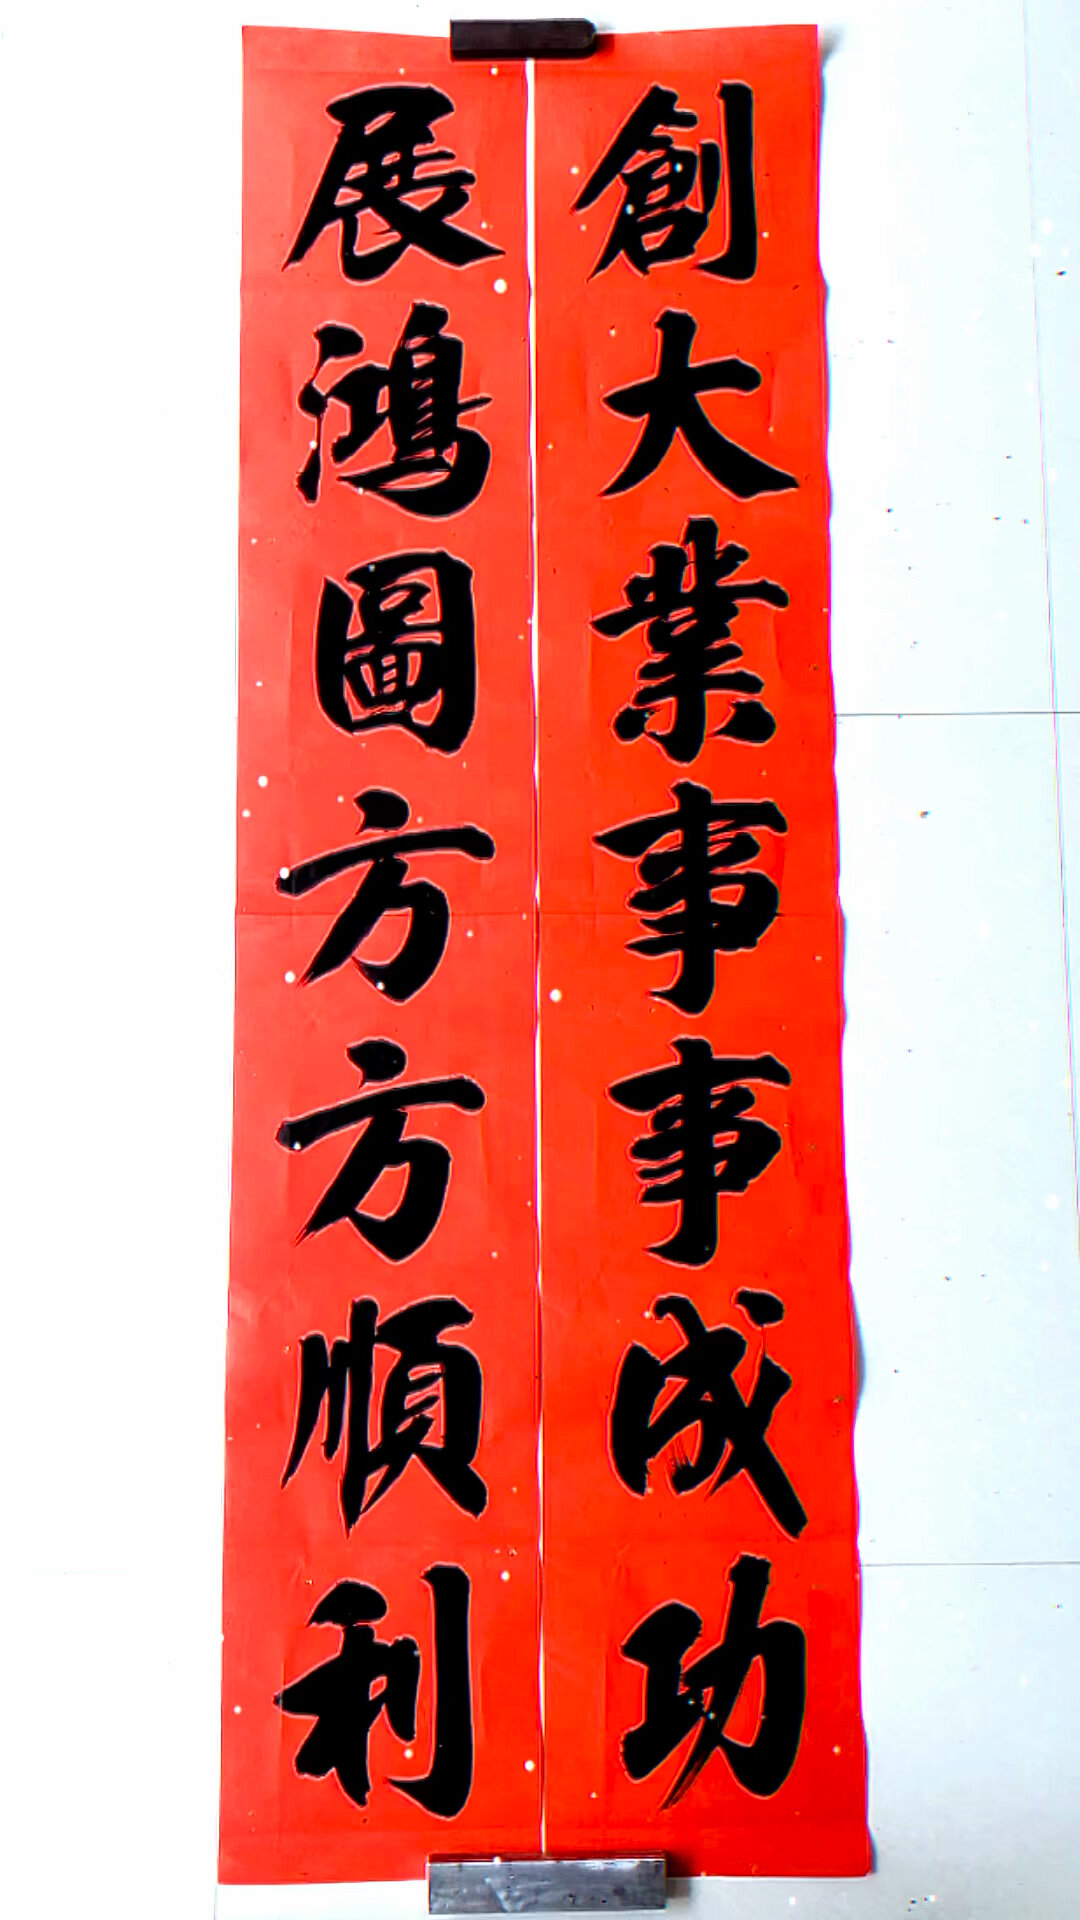 創大業事事成功
展鴻圖方方順利